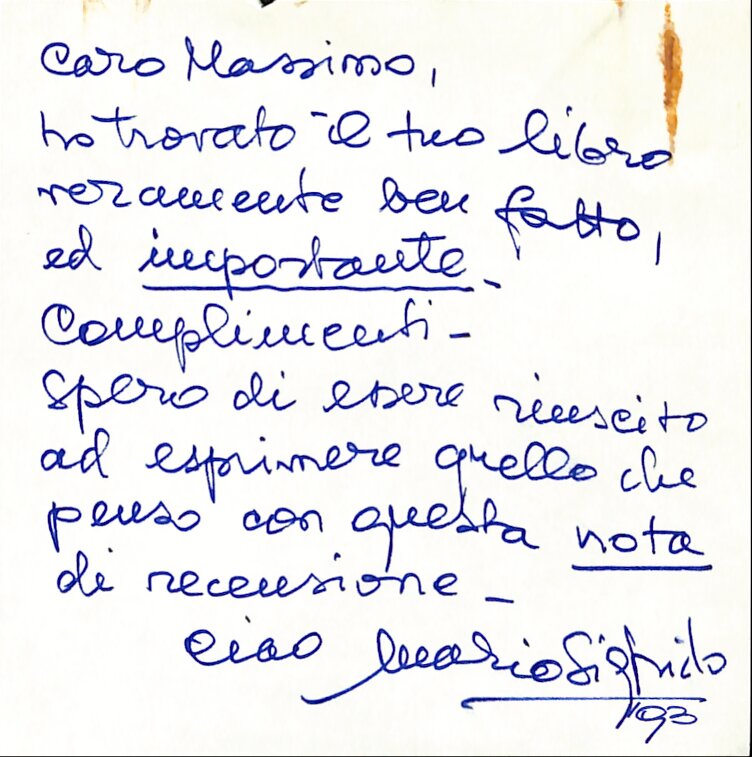 Caro Massimo,
ho trovato il tuo libro
veramente ben fatto,
ed importante.
Complimenti -
Spero di essere riuscito
ad esprimere quello che
penso con questa nota
di recensione -
ciao Mario Sigfrido
'93